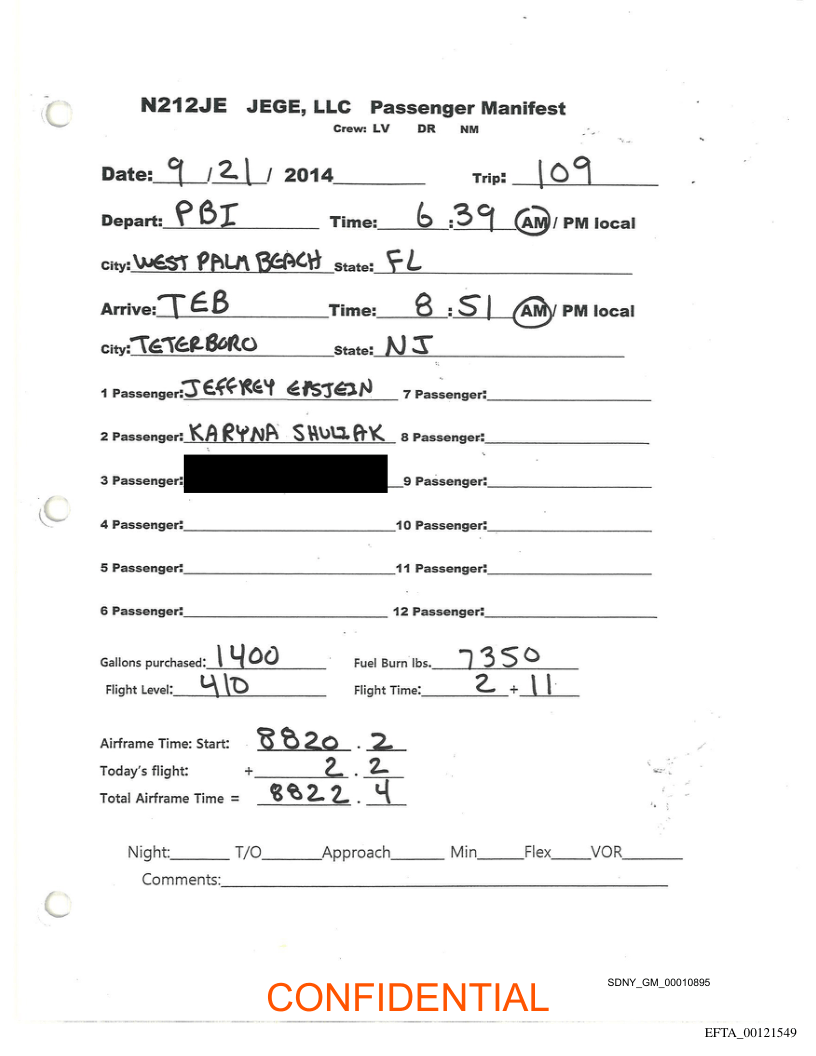 N212JE JEGE, LLC Passenger Manifest
Crew: LV DR NM
Date: 9 / 21 / 2014 Trip: 109
Depart: PBI Time: 6 : 39 AM / PM local
City: WEST PALM BEACH State: FL
Arrive: TEB Time: 8 : 51 AM / PM local
City: TETERBORO State: NJ
1 Passenger: JEFFREY EPSTEIN 7 Passenger:
2 Passenger: KARYNA SHULIAK 8 Passenger:
3 Passenger: 9 Passenger:
4 Passenger: 10 Passenger:
5 Passenger: 11 Passenger:
6 Passenger: 12 Passenger:
Gallons purchased: 1400 Fuel Burn lbs. 7350
Flight Level: 410 Flight Time: 2 + 11
Airframe Time: Start: 8820 . 2
Today's flight: + 2 . 2
Total Airframe Time = 8822 . 4
Night: T/O Approach Min Flex VOR
Comments:
SDNY_GM_00010895
CONFIDENTIAL
EFTA_00121549